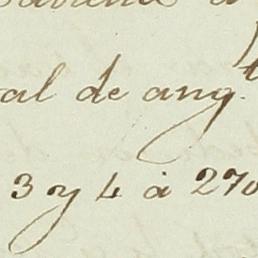 al de ang.to
3 y 4 à 270